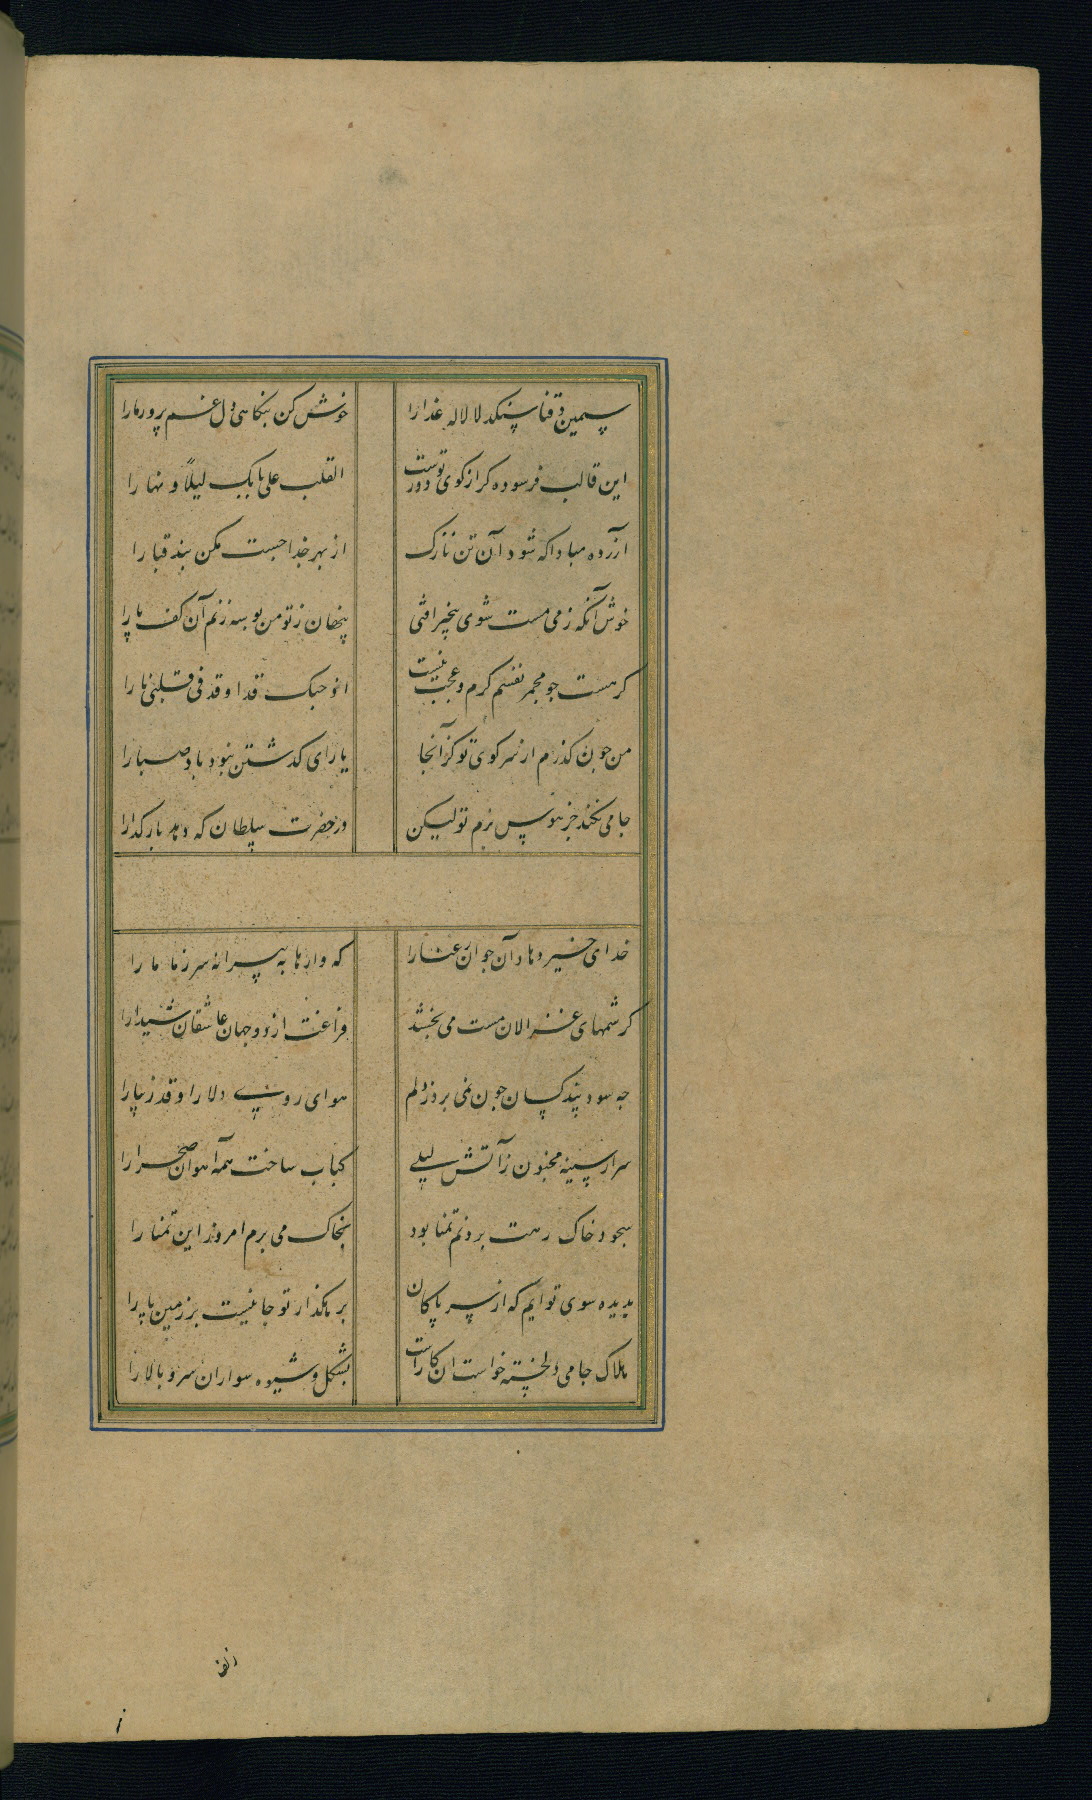 سیمین ذقنا سنکدلا لاله عذارا خوش کن بنکاهی دل غم پرور ما را
این قالب فرسوده کر از کوی تو دورست القلب علی بابک لیلاً و نهارا
آزرده مبادا که شود آن تن نازک از بهر خدا جست مکن بند قبا را
خوش آنکه ز می مست شوی بیخبر افتی پنهان ز تو من بوسه زنم آن کف پا را
کر هست جو مجمر نفسم کرم عجب نیست انو حبک قد اوقد فی قلبی نارا
من جون کذرم از سر کوی تو کز آنجا یارای کذشتن نبود باد صبا را
جامی نکند جز هوس بزم تو لیکن در حضرت سلطان که دهد بار کدا را
خدای خیر دهاد آن جوان رعنا را که وا رها به پیرانه سر ز ما ما را
کرشمهای غزالان مست می بخشد فراغت از دو جهان عاشقان شیدا را
جه سود پند کسان جون نمی برد ز دلم هوای روی دلارا و قد زیبا را
سرار سینه مجنون ز آتش لیلی کباب ساخت همه آهوان صحرا را
سجود خاک رهت بردنم تمنا بود بخاک می برم امروز این تمنا را
بدیده سوی تو ایم که از سر پاکان برهکذار تو جا نیست بر زمین پا را
هلاک جامی دلخسته خواست ان کاراست بشکل و شیوه سواران سرو بالا را